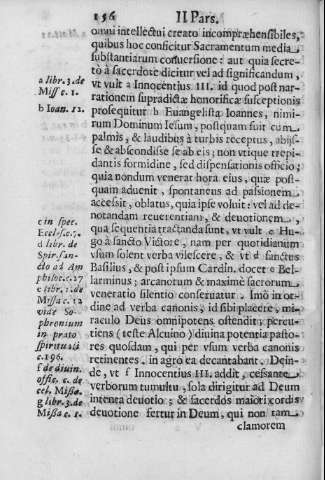 156 II Pars.
omni intellectui creato incompræhensibiles,
quibus hoc conficitur Sacramentum media
substantiarum conuersione: aut quia secre-
tò à sacerdote dicitur vel ad significandum,
vt vult a Innocentius III. id quod post nar-
rationem supradictæ honorificæ susceptionis
prosequitur b Euangelista Ioannes, nimi-
rum Dominum Iesum, postquam fuit cum
palmis, & laudibus à turbis receptus, abijs-
se & abscondisse se ab eis; non vtique trepi-
dantis formidine, sed dispensationis officio;
quia nondum venerat hora eius, quæ post-
quam aduenit, spontaneus ad passionem
accessit, oblatus, quia ipse voluit: vel ad de-
notandam reuerentiam, & deuotionem,
qua sequentia tractanda sunt, vt vult c Hu-
go à sancto Victore, nam per quotidianum
vsum solent verba vilescere, & vt d sanctus
Basilius, & post ipsum Cardin. docet e Bel-
larminus; arcanorum & maximè sacrorum
veneratio silentio conseruatur. Imò in or-
dine ad verba canonis, id sibi placere, mi-
raculo Deus omnipotens ostendit; percu-
tiens (teste Alcuino) diuina potentia pasto-
res quosdam, qui per vsum verba canonis
retinentes, in agro ea decantabant. Dein-
de, vt f Innocentius III. addit, cessante
verborum tumultu, sola dirigitur ad Deum
intenta deuotio; & sacerdos maiori cordis
deuotione fertur in Deum, qui non tam
clamorem
a libr. 3. de
Miss. c. 1.
b Ioan. 12.
c in spec.
Eccles. c. 7.
d libr. de
Spir. san-
cto ad Am
philoc. c. 27
e libr. 2. de
Missa c. 12
vide So-
phronium
in prato
spirituali
c. 196.
f de diuin.
offic. c. de
cel. Miss.
g libr. 3. de
Missa c. 1.